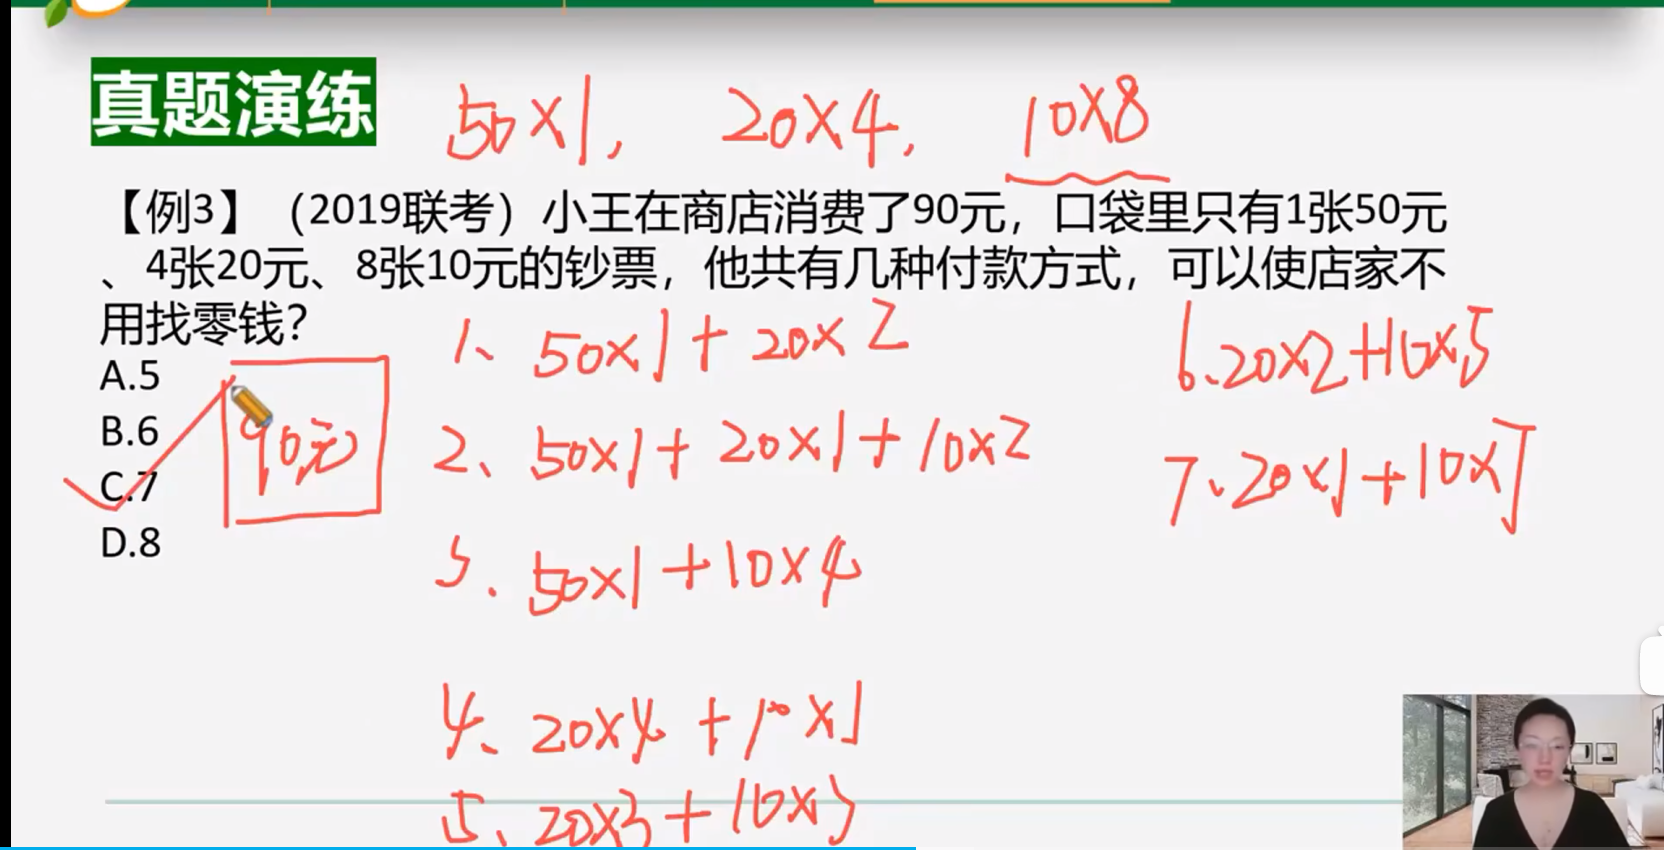 真题演练
50×1, 20×4, 10×8
【例3】（2019联考）小王在商店消费了90元，口袋里只有1张50元
、4张20元、8张10元的钞票，他共有几种付款方式，可以使店家不
用找零钱？
A.5
B.6
C.7
D.8
90元
1、50×1+20×2
2、50×1+20×1+10×2
3.50×1+10×4
4、20×4+10×1
5、20×3+10×3
6、20×2+10×5
7、20×1+10×7